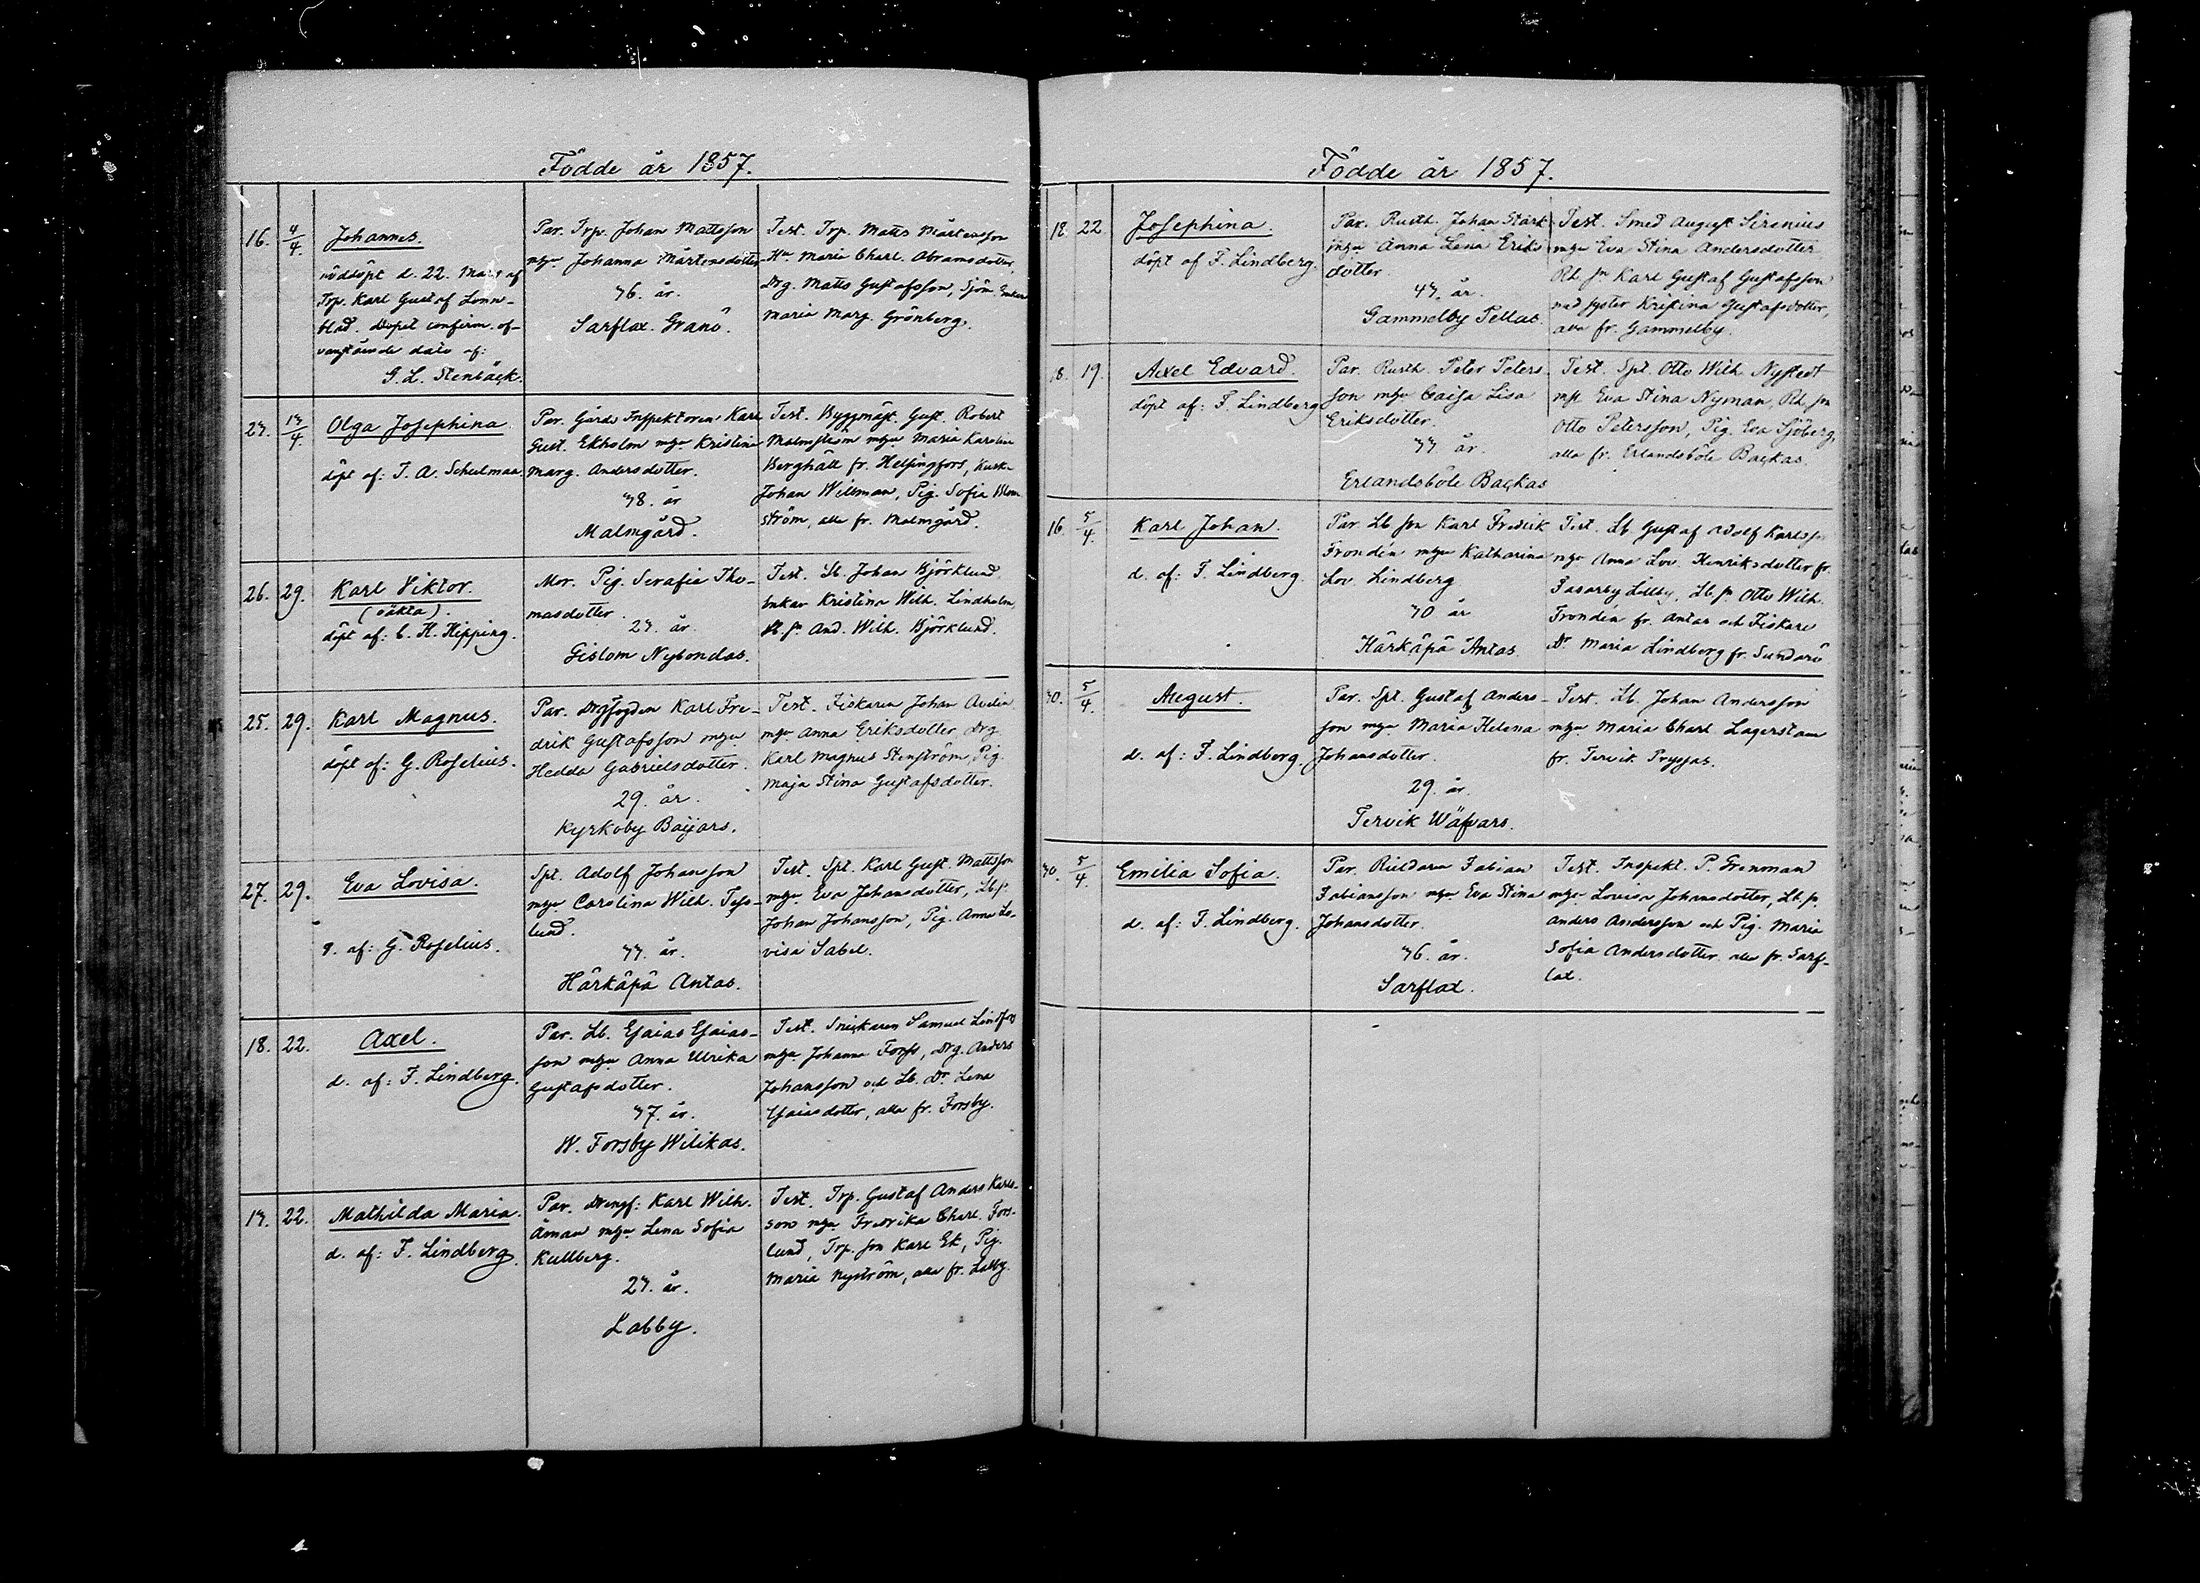 Födde år 1857.
16. 4/4. Johannes.
nöddöpt d. 22. Mars af
Trp. Karl Gustaf Lönn-
blad. Dopet confirm. of-
vanstående dato af:
G. L. Stenbäck.
Par. Trp. Johan Mattsson
mhu Johanna Mårtensdotter
36. år.
Sarflax. Granö.
Test. Trp. Matts Mårtensson
Hu Maria Charl. Abramsdotter,
Drg. Matts Gustafsson, Sjöm. Enkan
Maria Marg. Grönberg.
23. 13/4 Olga Josephina
döpt af: J. A. Schulman
Par. Gårds Inspektoren Karl
Gust. Ekholm mhu Kristina
Marg. Andersdotter.
38. år
Malmgård.
Test. Byggmäst. Gust. Robert
Malmström mhu Maria Karolina
Berghäll fr. Helsingfors, Kusk.
Johan Willman, Pig. Sofia Blom
ström, alla fr. Malmgård.
26. 29. Karl Viktor.
(oäkta).
döpt af: C. H. Hipping.
Mor. Pig. Serafia Tho-
masdotter.
23. år.
Gislom Nybondas.
Test. Lb. Johan Björklund,
enkan Kristina Wilh. Lindholm,
And. Wilh. Björklund.
25. 29. Karl Magnus.
döpt af: G. Roselius.
Par. Drgfogden Karl Fre-
drik Gustafsson mhu
Hedda Gabrielsdotter.
29. år.
Kyrkoby Baijars.
Test. Fiskaren Johan
mhu Anna Eriksdotter Drg
Karl Magnus Stenström, Pig.
Maja Stina Gustafsdotter.
27. 29. Eva Lovisa.
d. af: G. Roselius.
Spt. Adolf Johansson
mhu Carolina Wilh. Fors-
lund.
33. år.
Härkäpä Antas.
Test. Spt. Karl Gust. Mattsson
mhu Eva Johansdotter, Lb. sn
Johan Johansson, Pig. Anna Lo-
visa Sabel.
18. 22. Axel.
d. af: F. Lindberg.
Par. Lb. Esaias Esaias-
son mhu Anna Ulrika
Gustafsdotter.
37. år.
W. Forsby Wilikas.
Test. Snickaren Samuel Lindfors
mhu Johanna Forss, Drg. Anders
Johansson och Lb. Dr Lena
Esaiasdotter, alla fr. Forsby.
13. 22. Mathilda Maria.
d. af: F. Lindberg.
Par. Drengf: Karl Wilh.
Åman mhu Lena Sofia
Kullberg.
23. år.
Labby.
Test. Trp. Gustaf Anders Karls-
son mhu Fredrika Charl. Fors-
lund, Trp. son Karl Ek, Pig.
Maria Nyström, alla fr. Labby.
Födde år 1857.
18. 22 Josephina.
döpt af F. Lindberg.
Par. Rusth. Johan Stark
mhu Anna Lena Eriks
dotter.
43. år.
Gammelby Pellas.
Test. Smed August Sirenius
mhu Eva Stina Andersdotter
Rd. sn Karl Gustaf Gustafsson
med syster Kristina Gustafsdotter,
alla fr. Gammelby.
18. 19. Axel Edvard.
döpt af: F. Lindberg
Par. Rusth. Peter Peters
son mhu Caisa Lisa
Eriksdotter.
33 år.
Erlandsböle Backas
Test. Spt. Otto Wilh. Nystedt
mhu Eva Stina Nyman, Rd. sn
Otto Petersson, Pig. Eva Sjöberg,
alla fr. Erlandsböle Backas.
16. 5/4. Karl Johan.
d. af: F. Lindberg.
Par. Lb son Karl Fredrik
Frondén mhu Katharina
Lov. Lindberg
30 år
Härkäpä Antas.
Test. Lb. Gustaf Adolf Karlsson
mhu Anna Lov. Henriksdotter fr.
Fasarby Lillby, Lb. sn Otto Wilh.
Frondén fr. Antas och Fiskare
Dr Maria Lindberg fr. Sundarö
30. 5/4. August.
d. af: F. Lindberg.
Par. Spt. Gustaf Anders-
son mhu Maria Helena
Johansdotter.
29. år.
Tervik Wäfvars.
Test. Lb. Johan Andersson
mhu Maria Charl. Lagerstam
fr. Tervik
30. 5/4. Emilia Sofia.
d. af: F. Lindberg.
Par. Rieldaren Fabian
Fabiansson mhu Eva Stina
Johansdotter.
36. år.
Sarflax.
Test. Inspekt. P. Frenman
mhu Lovisa Johansdotter, Lb. sn
Anders Andersson och Pig. Maria
Sofia Andersdotter alla fr. Sarf-
lax.